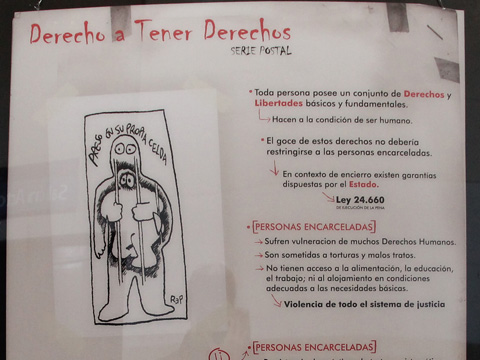 Derecho a Tener Derechos
SERIE POSTAL
PRESO EN SU PROPIA CELDA
• Toda persona posee un conjunto de Derechos y
Libertades básicos y fundamentales.
Hacen a la condición de ser humano.
• El goce de estos derechos no debería
restringirse a las personas encarceladas.
En contexto de encierro existen garantias
dispuestas por el Estado.
Ley 24.660
DE EJECUCIÓN DE LA PENA
• [PERSONAS ENCARCELADAS]
Sufren vulneracion de muchos Derechos Humanos.
Son sometidas a torturas y malos tratos.
No tienen acceso a la alimentación, la educación,
el trabajo; ni al alojamiento en condiciones
adecuadas a las necesidades básicas.
Violencia de todo el sistema de justicia
• [PERSONAS ENCARCELADAS]